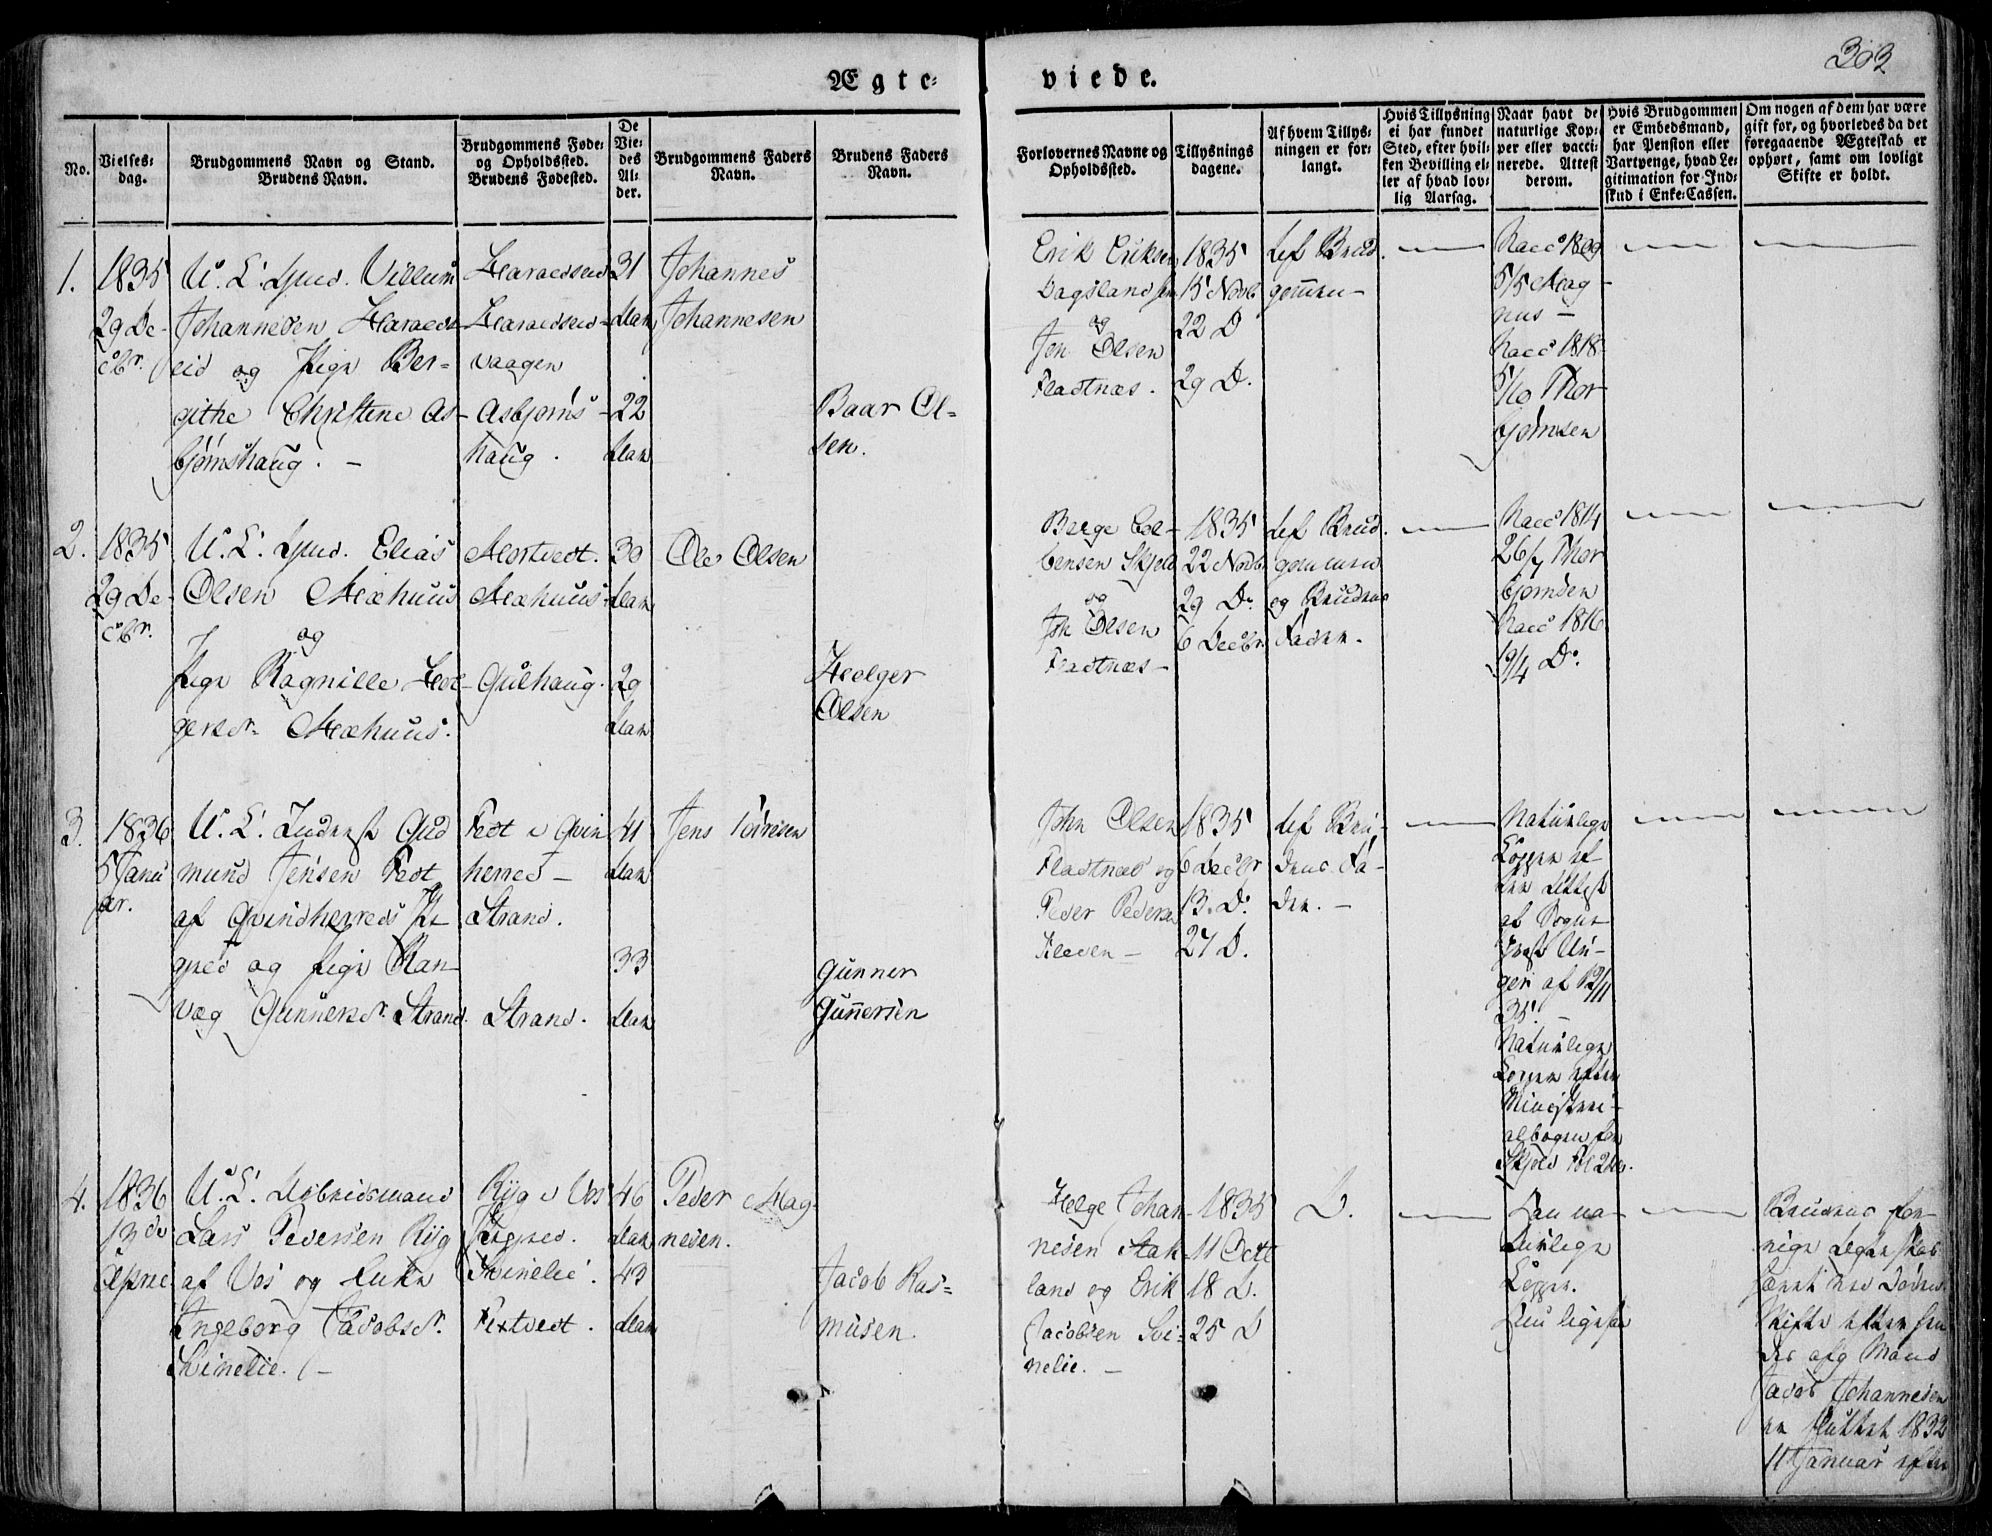 303
Ægte-
viede.
No.
Vielses-
dag.
Brudgommens Navn og Stand.
Brudens Navn.
Brudgommens Føde-
og Opholdssted.
Brudens Fødested.
De
Vie-
des
Al-
der.
Brudgommens Faders
Navn.
Brudens Faders
Navn.
Forlovernes Navne og
Opholdssted.
Tillysnings
dagene.
Af hvem Tillys-
ningen er for-
langt.
Hvis Tillysning
ei har fundet
Sted, efter hvil-
ken Bevilling el-
ler af hvad lov-
lig Aarsag.
Naar havt de
naturlige Kop-
per eller vacci-
nerede. Attest
derom.
Hvis Brudgommen
er Embedsmand,
har Pension eller
Vartpenge, hvad Le-
gitimation for Ind-
skud i Enke-Cassen.
Om nogen af dem har være
gift for, og hvorledes da det
foregaaende Ægteskab er
ophørt, samt om lovligt
Skifte er holdt.
1.
1835
29 De-
cbr.
U. C. Villum
Johannesen
eid og Pige Ber-
githe Christene As-
bjørnshaug. -
vaagen
Asbjørns-
haug.
31
Aar
22
Aar
Johannes
Johannesen
Baar Ol-
sen.
Erik Eriksen
Dagsland
og
Jon Olsen
Fladtnæs.
1835
15 Novb
22 D
29 D.
af Brud-
gommen -
Vacc 1809
5/5 Mag-
nus -
Vacc 1818
5/10 Thor
bjørnsen
2.
1835
29 De-
cbr.
U. C. Elias
Olsen Mæhuus
og
Pige Ragnille Hol-
gersdr. Mæhuus.
Mortvedt.
Mæhuus
Gulhaug.
30
Aar
29
Aar
Ole Olsen
Holger
Olsen
Berge Col-
bensen Skjold
og
Jon Olsen
Fladtnæs -
1835
22 Novbr
29 D.
6 Decbr.
af Brud-
gommen
og Brudens
Fader.
Vacc 1814
26/7 Thor
bjørnsen
Vacc 1816
19/4 D.
3.
1836
5 Janu
ar.
U. C. Gud
mund Jensen Fedt
af Qvindherreds Pr
gjeld og Pige Ran-
væg Gunnersdr. Strand.
Fedt i Qvin
herred -
Strand.
Strand.
41
Aar
33
Aar
Jens
Gunner
Gunnersen
John Olsen
Fladtnæs og
Peder Pedersen
1835
6 Decbr
13. D.
27 D.
af Bru-
dens Fa-
der. -
Naturlige
Kopper ef-
ter Attest
af Sogne
Præst Un-
ger af 12/11
35. -
Naturlige
Kopper efter
Ministeri-
albogen for
Skjold
4.
1836
13de
U. C. Arbeidsmand
Lars Pedersen Ryg
af Vos og Enke
Ingeborg Jacobsdr.
Svinelie. -
Ryg i Vos
Svinelie.
46
Aar
43
Aar
Peder Mag-
nesen.
Jacob Ras-
musen.
Helge Johan-
nesen Stak-
land og Erik
Jacobsen Svi-
nelie. -
1835
11 Octb
18 D.
25 D
D.
Han na-
turlige
Kopper.
Hun ligesaa
Brudens for-
rige Ægteskab
hævet ved Døden.
Skifte efter hen
des afg Mand
Jacob Johannesen
er sluttet 1832
11 Januar efter